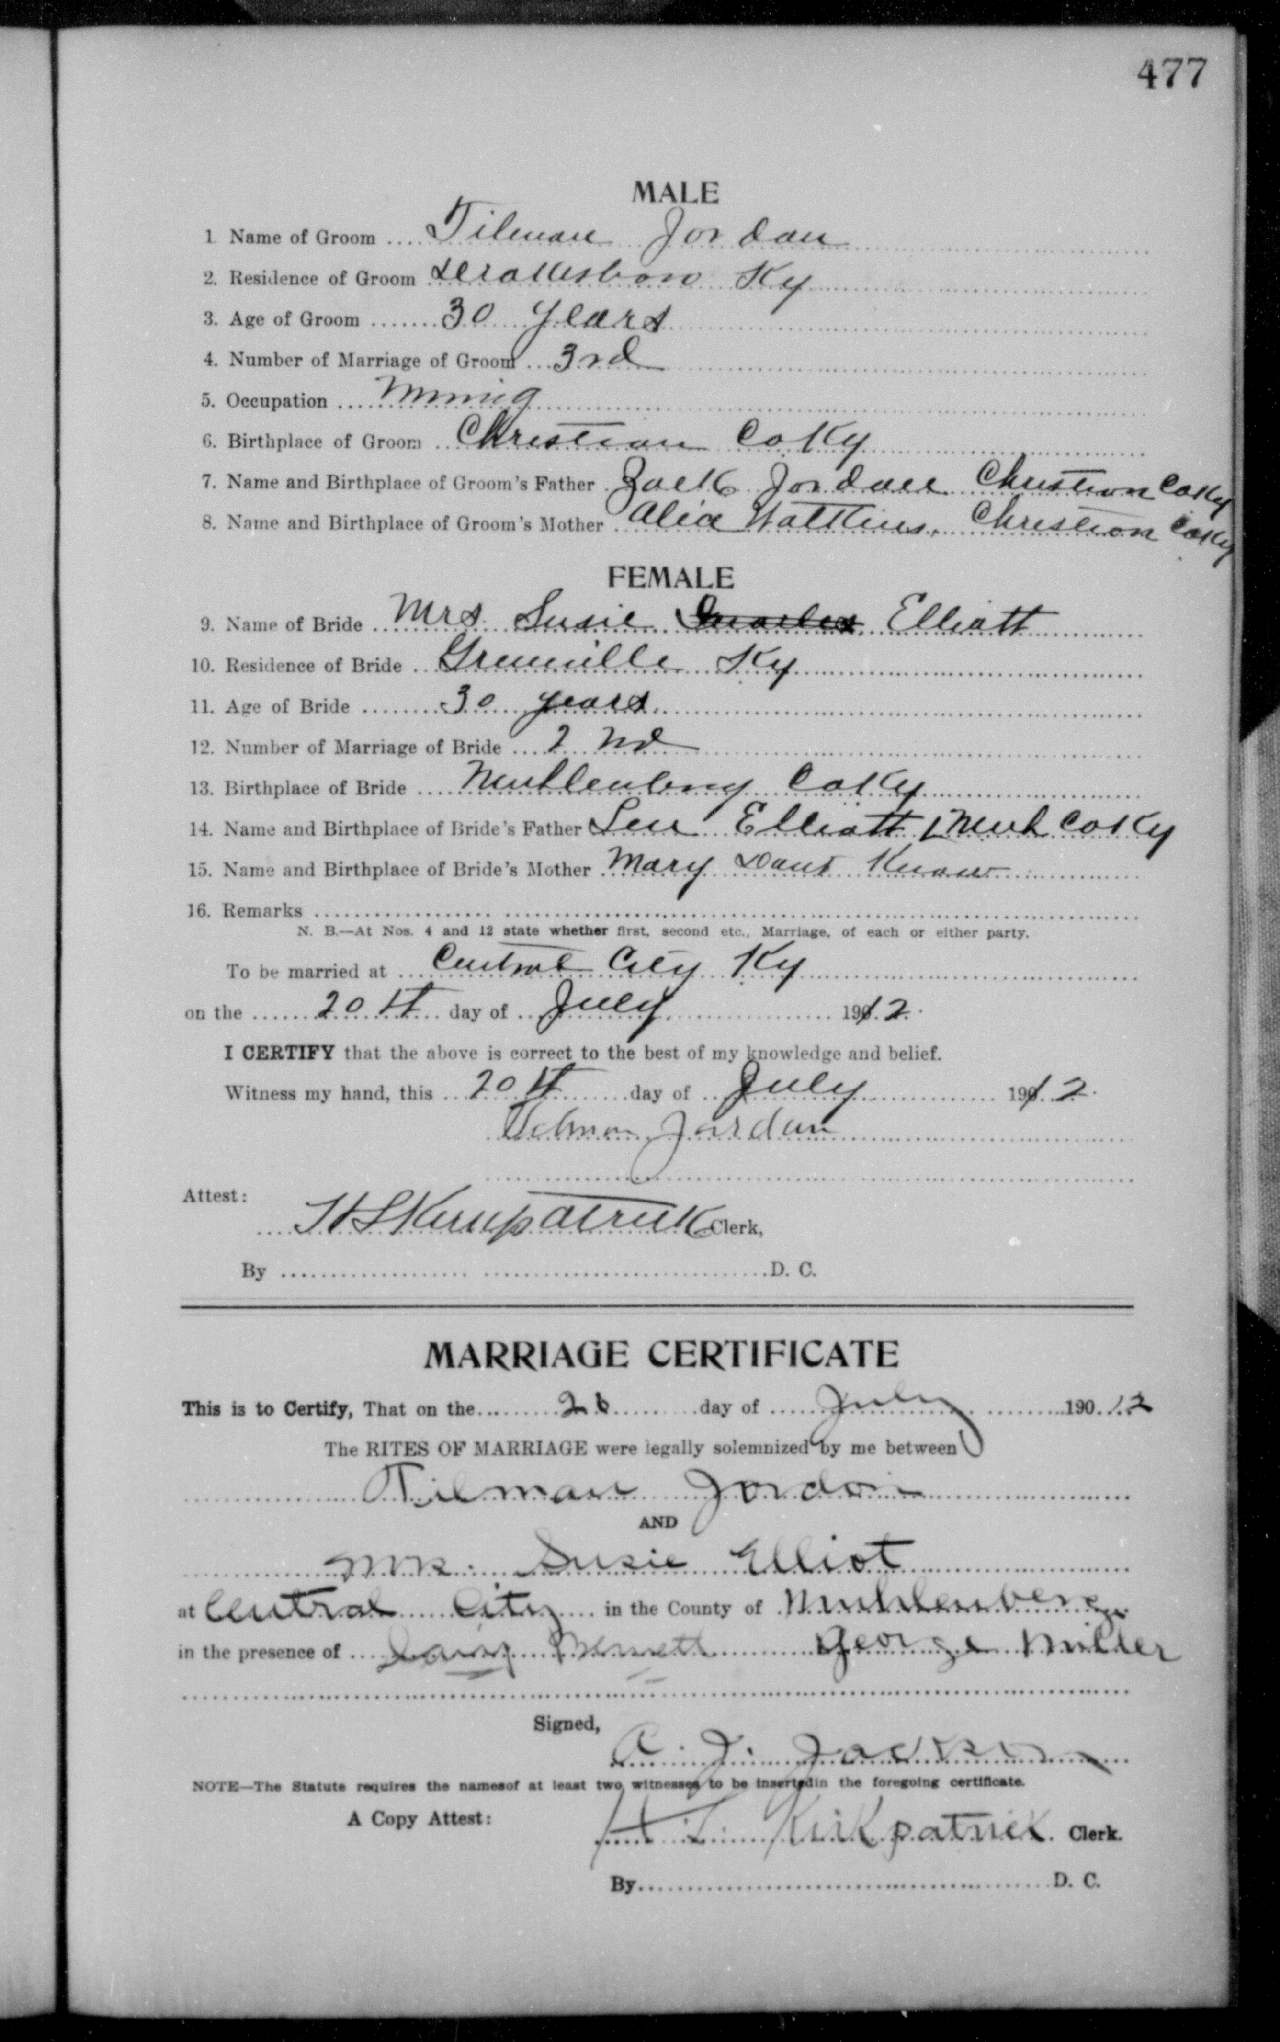 477
MALE
1 Name of Groom .... Tilman Jordan
2. Residence of Groom Drakesboro Ky
3. Age of Groom ....... 30 years
4. Number of Marriage of Groom ... 3rd
5. Occupation .... Mining
6. Birthplace of Groom .. Christian Co Ky
7. Name and Birthplace of Groom's Father . Zack Jordan Christian Co Ky
8. Name and Birthplace of Groom's Mother Watkins, Christian Co Ky
FEMALE
9. Name of Bride ... Mrs Susie Elliott
10. Residence of Bride .. Greenville Ky
11. Age of Bride ........ 30 years
12. Number of Marriage of Bride ... 2 nd
13. Birthplace of Bride .... Muhlenberg Co Ky
14. Name and Birthplace of Bride's Father Elliott Muh Co Ky
15. Name and Birthplace of Bride's Mother Mary Dont Know
16. Remarks
N. B.—At Nos. 4 and 12 state whether first, second etc., Marriage, of each or either party.
To be married at ... Central City Ky
on the ...... 20 th day of .. July 1912.
I CERTIFY that the above is correct to the best of my knowledge and belief.
Witness my hand, this ... 20 th day of .. July 1912.
Tilman Jordan
Attest:
Kirkpatrick Clerk,
By D. C.
MARRIAGE CERTIFICATE
This is to Certify, That on the day of July 190 12
The RITES OF MARRIAGE were legally solemnized by me between
Tilman Jordon
AND
Mrs. Susie Elliot
at Central City in the County of Muhlenberg
in the presence of George Miller
Signed,
Jackson
NOTE—The Statute requires the namesof at least two witnesses to be insertedin the foregoing certificate.
A Copy Attest:
Kirkpatrick Clerk.
By D. C.